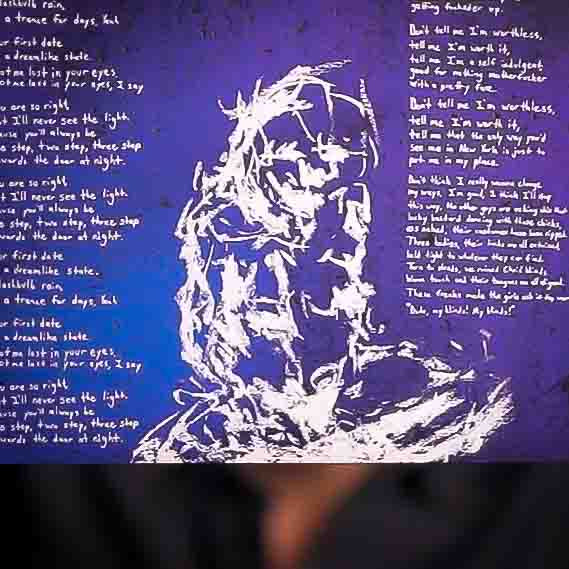 rain,
a trance for days, Yeah
first date
a dreamlike state.
me lost in your eyes,
me lost in your eyes, I say
are so right
I'll never see the light.
you'll always be
step, two step, three step
the door at night.
are so right
I'll never see the light.
you'll always be
step, two step, three step
the door at night.
first date
a dreamlike state.
rain,
a trance for days, Yeah
first date
a dreamlike state.
me lost in your eyes,
me lost in your eyes, I say
are so right
I'll never see the light.
you'll always be
step, two step, three step
the door at night.
getting fuckeder up.
Don't tell me I'm worthless,
tell me I'm worth it,
tell me I'm a self indulgent
good for nothing motherfucker
with a pretty face.
Don't tell me I'm worthless,
tell me I'm worth it,
tell me that the only way you'd
see me in New York is just to
put me in my place.
Don't think I really wanna change
my ways, I'm good, I think I'll stay
this way. The other guys are
lucky bastard dancing with those chicks,
naked, their
Three bodies, their
hold tight to whatever they can find.
Turn to
and their tongues
These freaks make the girls
"Dude, my blinds! My blinds!"